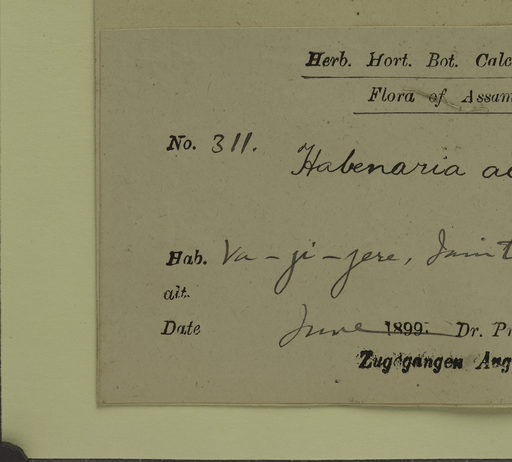 Herb. Hort. Bot. Calc
Flora of Assam
No. 311.
Habenaria ac
Hab. Va-ji-jere, Jaint
alt.
Date June 1899. Dr. Pr
Zugegangen Aug